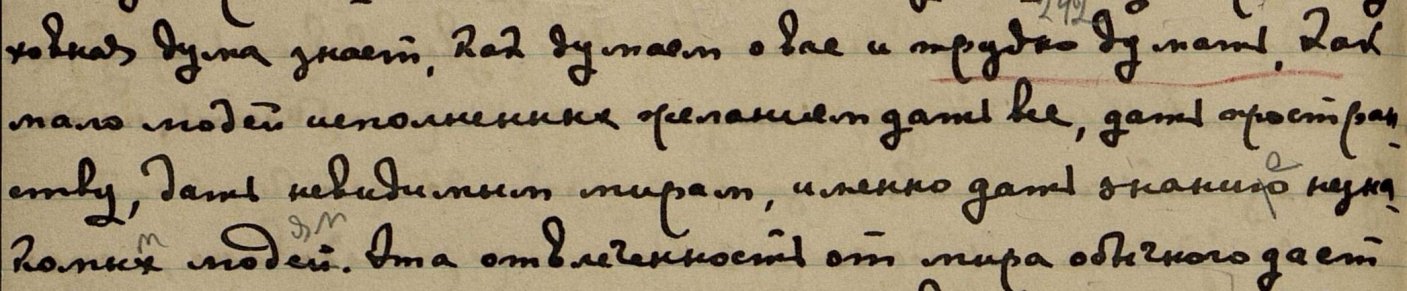 ховная дума знает, как думаем о вас и трудно думать, как
мало людей исполненных желанием дать все, дать простран-
ству, дать невидимым мирам, именно дать знанию незна-
комых людей. Эта отвлеченность от мира обычного дает